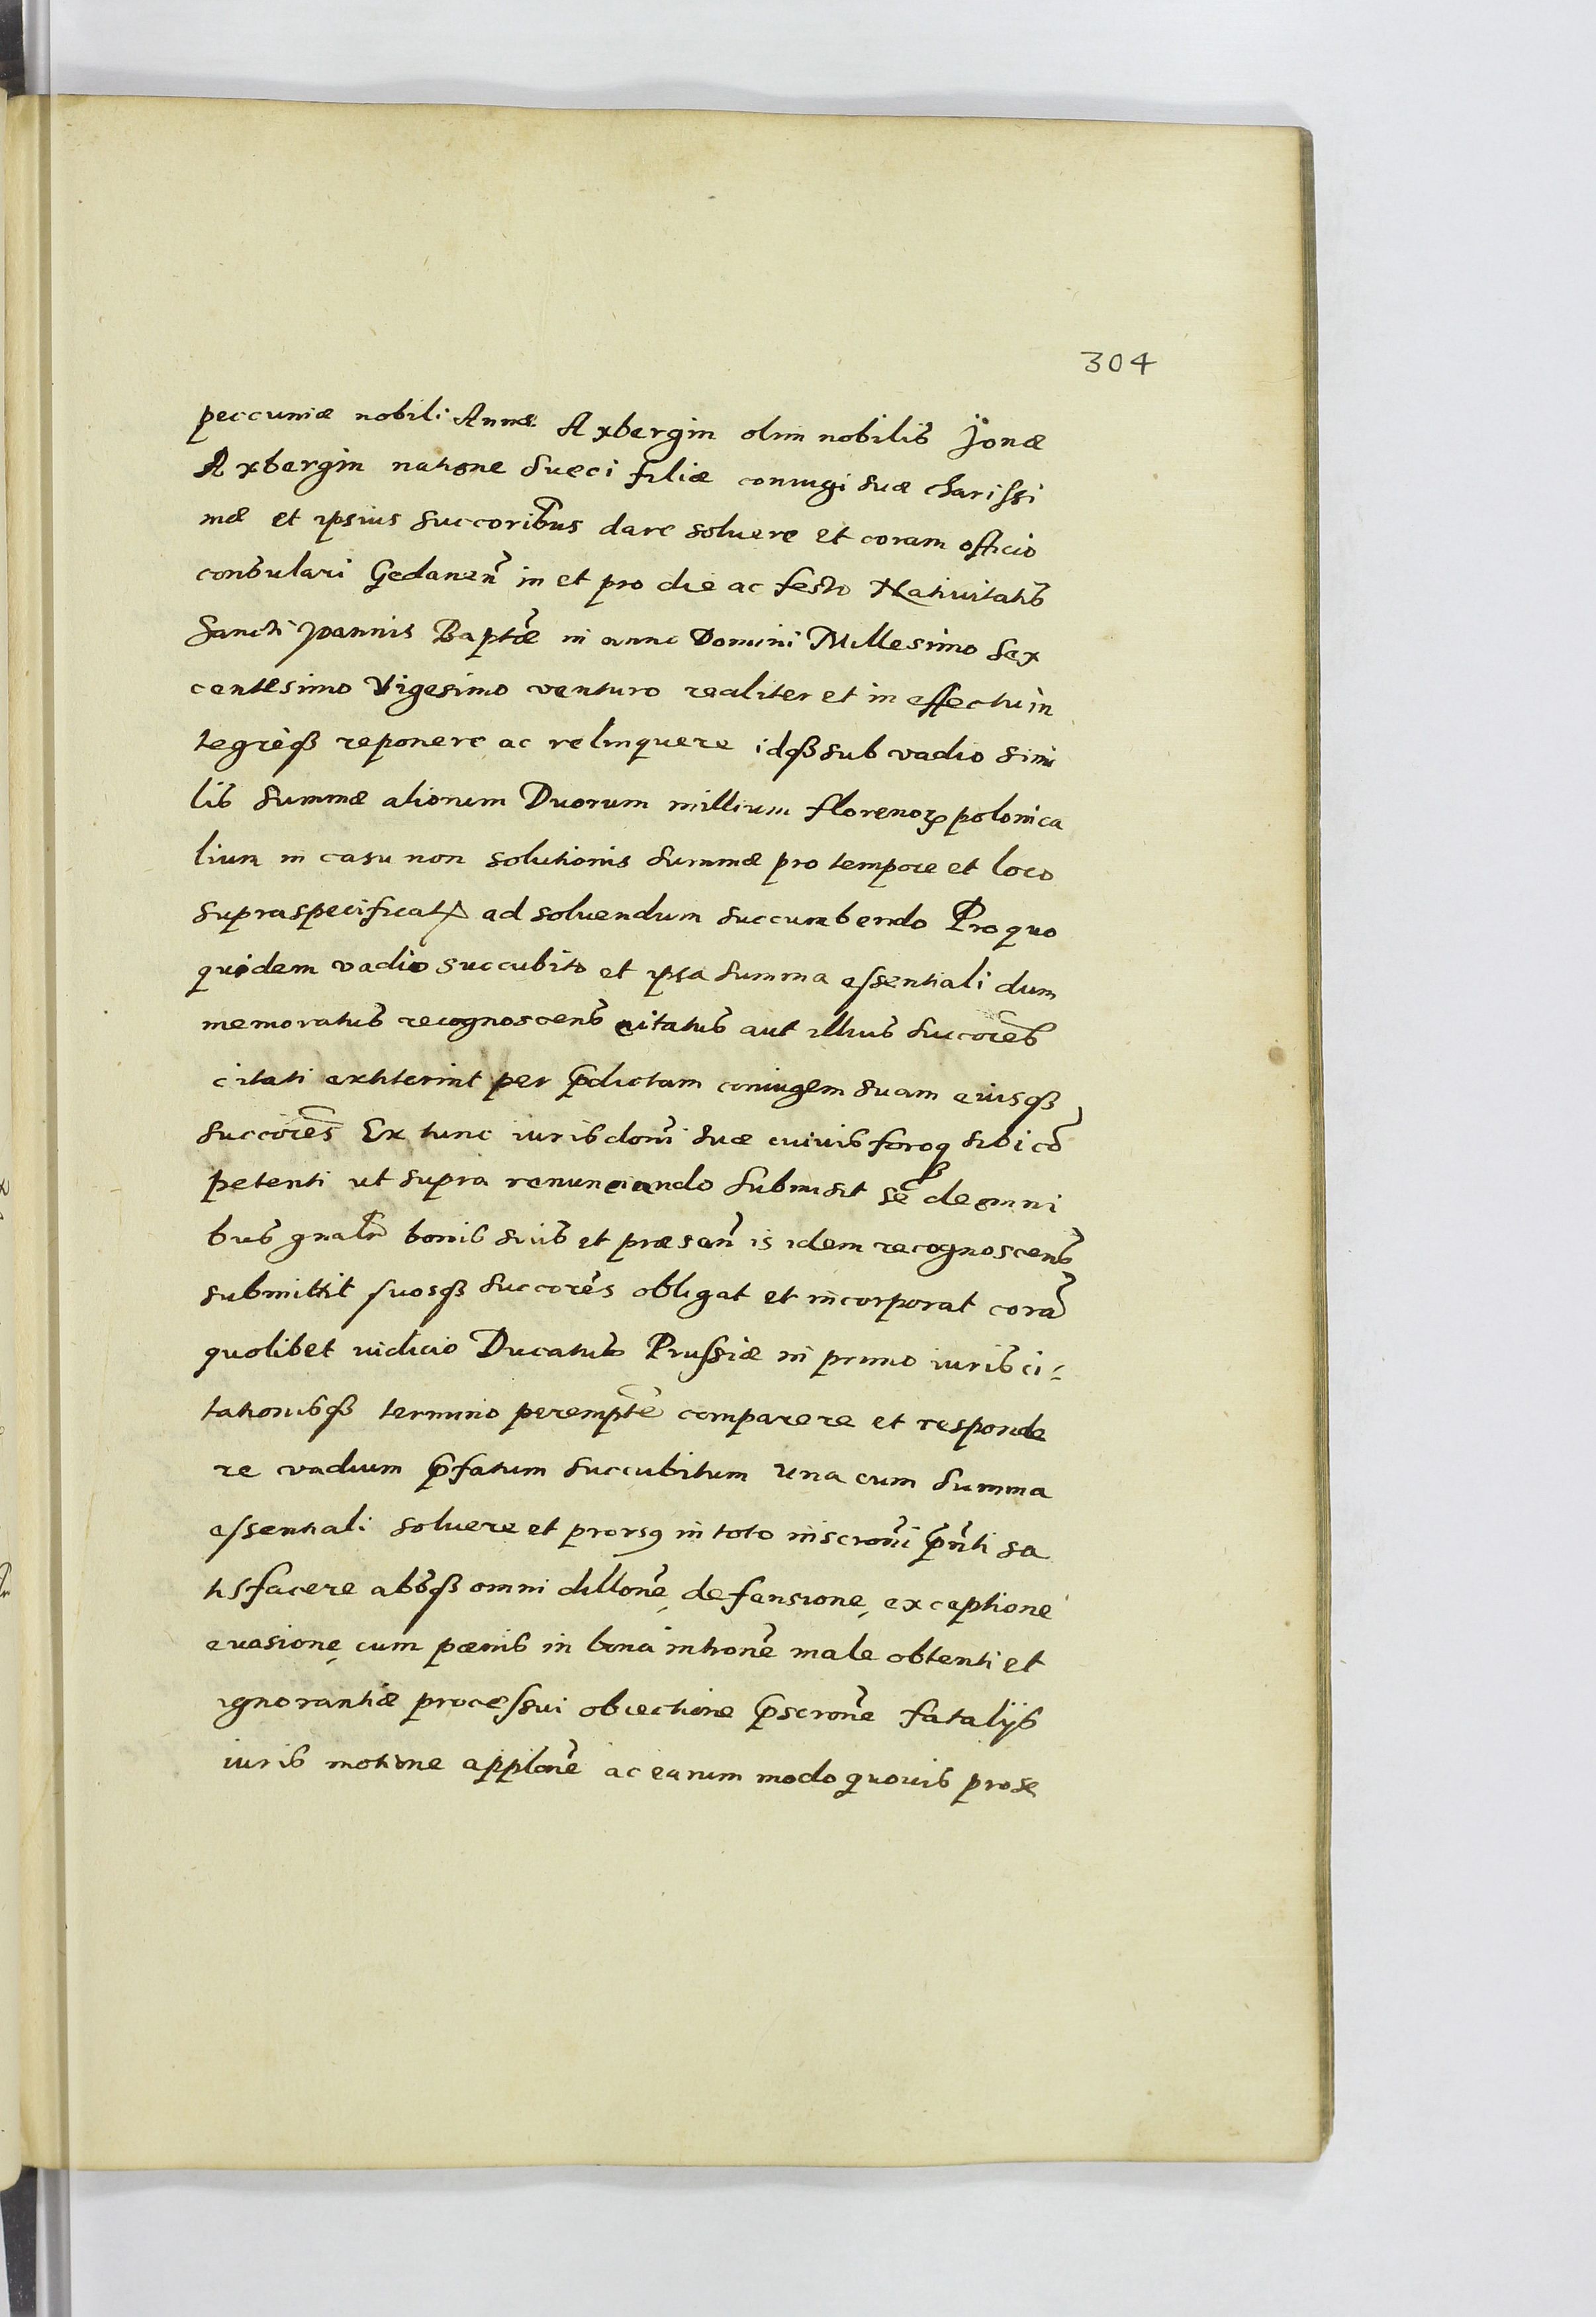 304
peccuniæ nobili Annæ Axbergin olim nobilis Jonæ
Axbergin natione Sueci filiæ coniugi suæ charissi
mæ et ipsius succoribus dare soluere et coram officio
consulari Gedanen̄ in et pro die ac festo Natiuitatis
Sancti Joannis Baptæ in anno Domini Millesimo sex
centesimo Vigesimo venturo realiter et in effectu in
tegreq̃ reponere ac relinquere idq̃ sub vadio simi
lis summæ aliorum Duorum millium florenoꝝ polonica
lium in casu non solutionis summæ pro tempore et loco
supraspecificatꝭ ad soluendum succumbendo Pro quo
quidem vadio succubito et ipsa summa essentiali dum
memoratus recognoscens citatus aut illius succores
citati extiterint per p̃dictam coniugem suam eiusq̃
succores Ex tunc iurisdoni suæ cuiuis foroq̃ sibi cō
petenti ut supra renunciando submisit sē de omni
bus gnalr̄ bonis suis et præsen̄ is idem recognoscens
submittit suosq̃ succores obligat et incorporat corā
quolibet iudicio Ducatus Prussiæ in primo iuris ci:
tationisq̃ termino perempte comparere et responde
re vadium p̃fatum succubitum una cum summa
essentiali soluere et prorsꝰ in toto inscroni p̃nti sa
tisfacere absq̃ omni dillone, defensione, exceptione
euasione, cum pœnis in bona introne male obtenti et
ignorantiæ processui obiectione p̃scrone fatalijs
iuris motione applone ac earum modo quouis prose